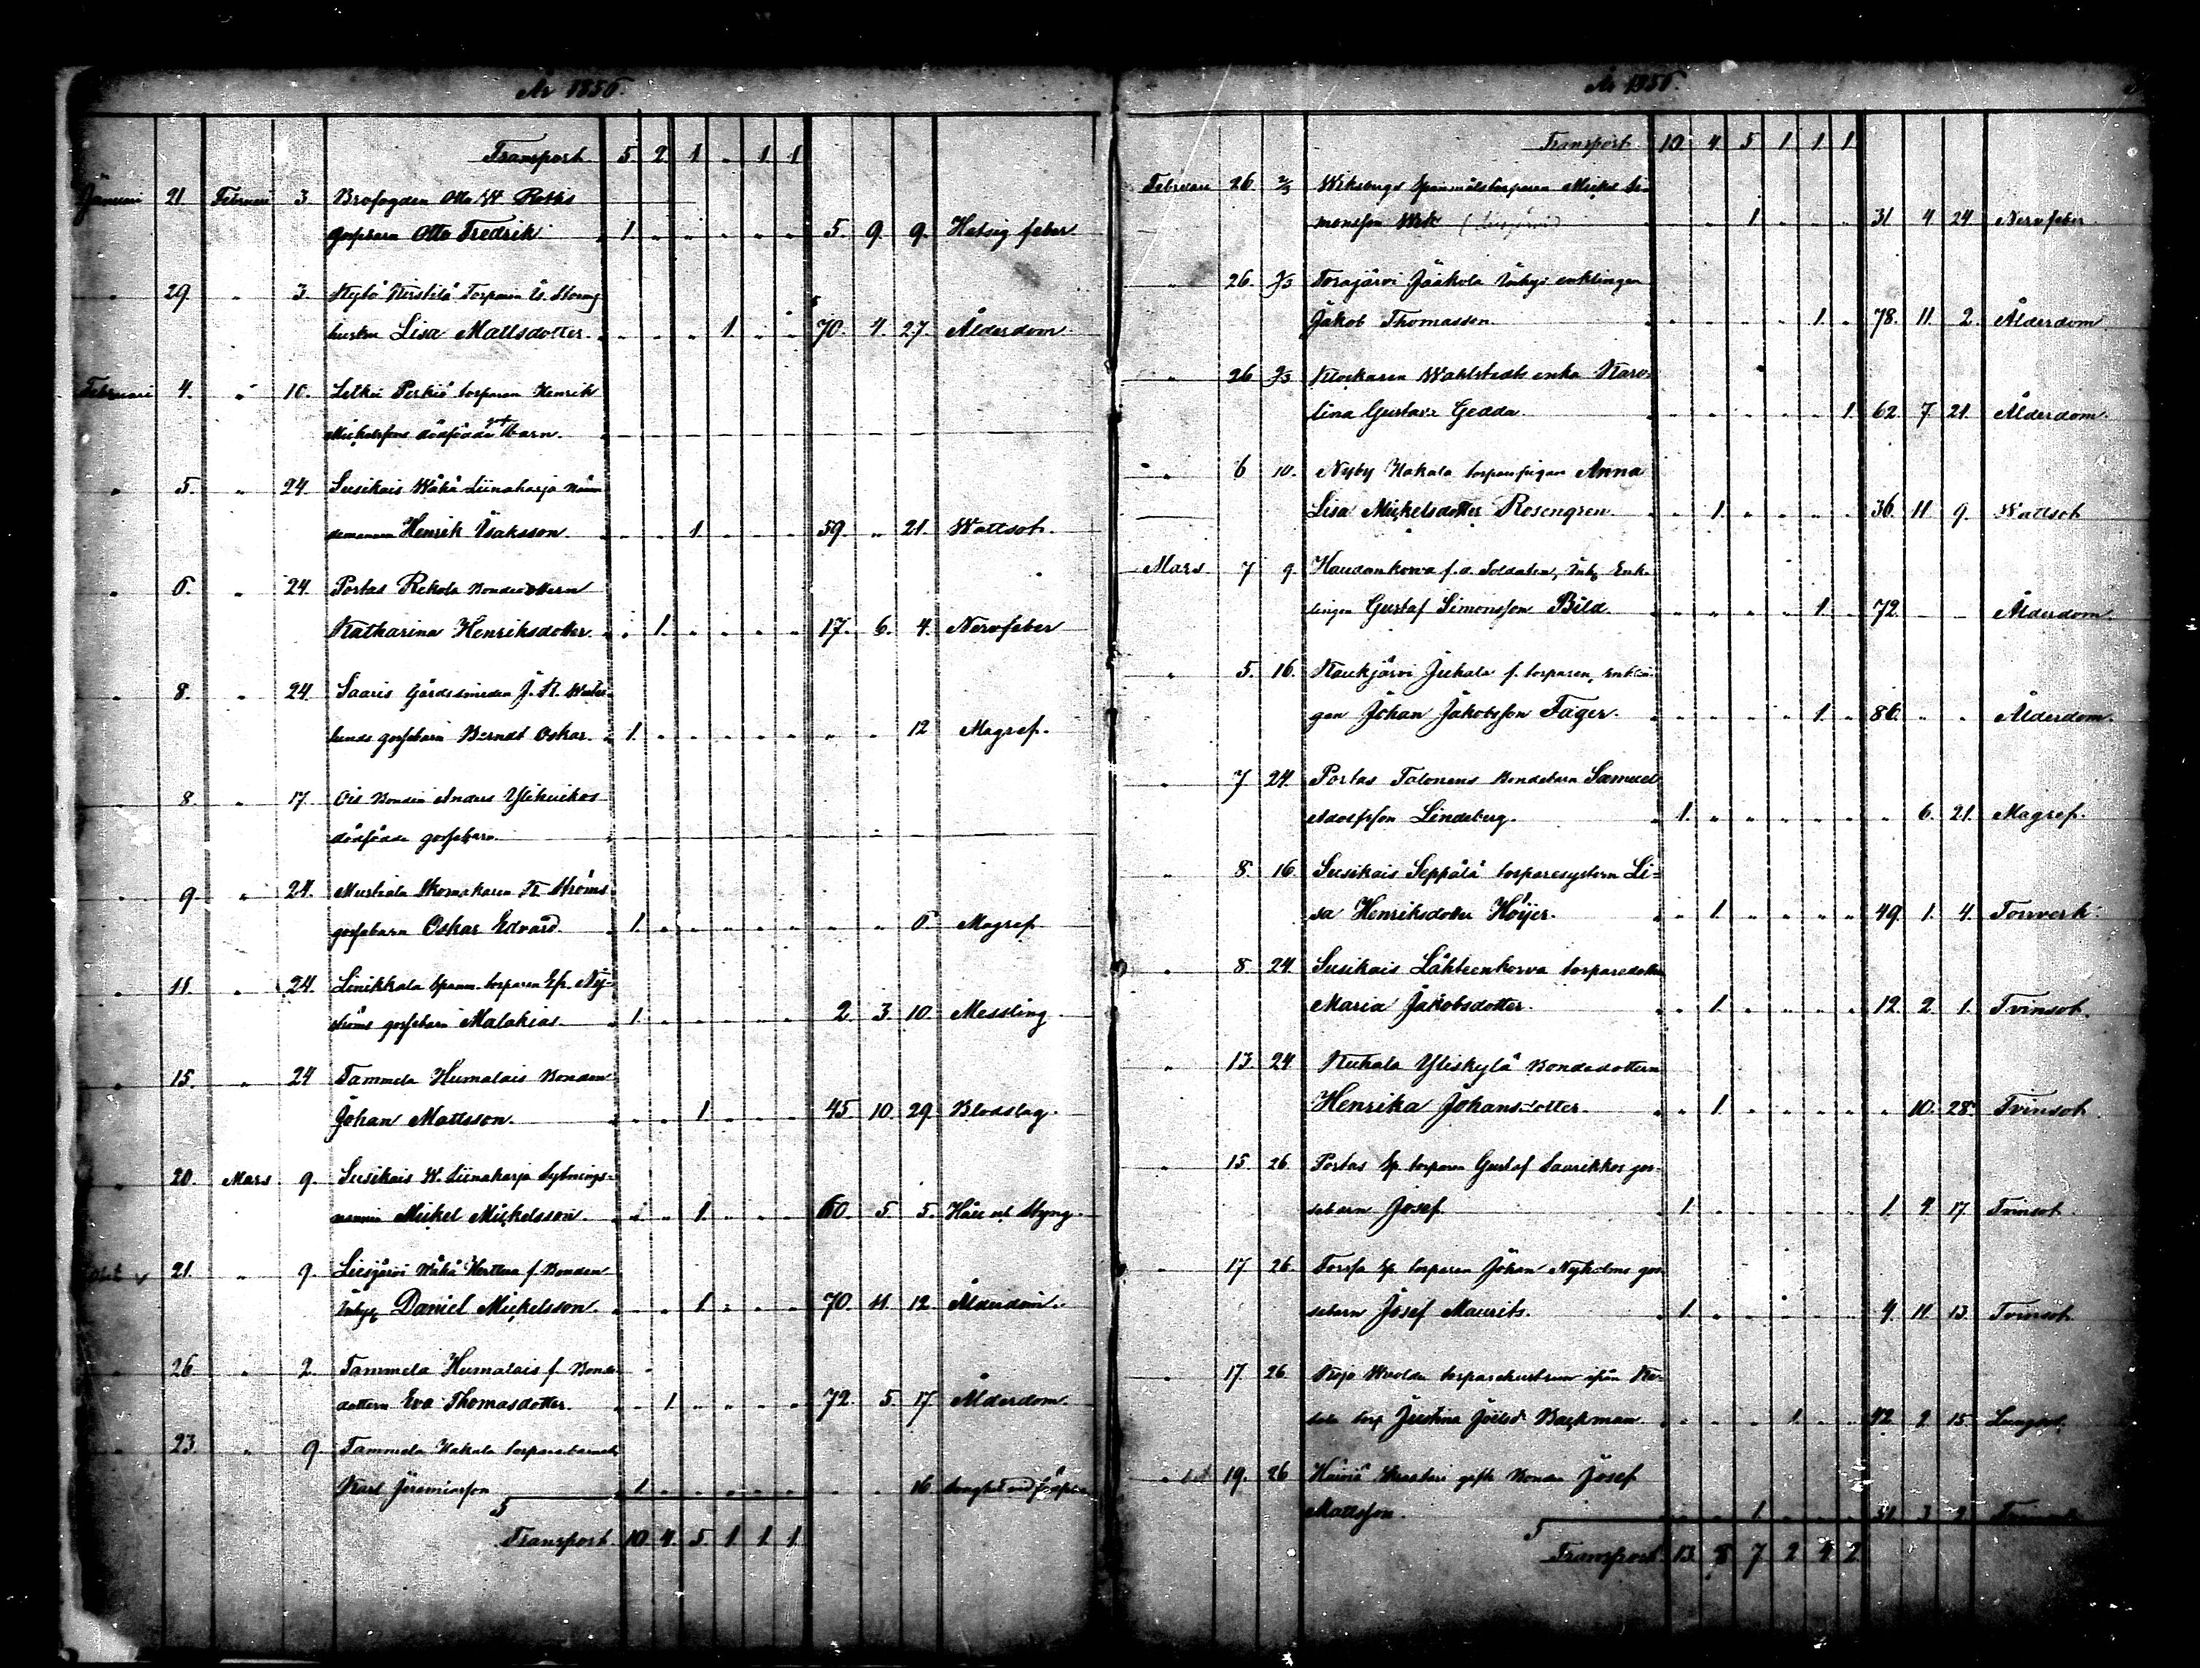 År 1856.
Transport 5. 2. 1. " 1 1
Januari 21 Februari 3. Brofogden Otto W
gossebarn Otto Fredrik 1. " " " " " 5. 9. 9. Hetsig feber
" 29. " 3
hustru Lisa Mattsdotter. " " " 1. " " 70. 4. 27. Ålderdom
Februari 4. " 10. torparen Henrik
Mickelssons dödfödde barn.
" 5. " 24. Susikais Liinaharja Näm-
demannen Henrik Isaksson. " " 1. " " " 59. " 21. Wattsot.
" 6. " 24. Portas Rekola Bondedottern
Katharina Henriksdotter " 1. " " " " 17. 6. 4. Nervfeber
" 8. " 24. Saaris Gårdssmeden J. K. Wester-
lunds gossebarn Berndt Oskar. 1. " " " " " " " 12 Magref.
" 8. " 17. Ois Bonden Anders Ylikuikos
dödfödda gossebarn.
" 9. " 24. Mustiala Skomakaren K Ströms
gossebarn Oskar Edvard. 1. " " " " " " " 6. Magref
" 11. " 24. Linikkala torparen Ny-
ströms gossebarn Malakias. 1. " " " " " 2. 3. 10. Messling
" 15. " 24 Tammela Humalais Bonden
Johan Mattsson. " " 1. " " " 45. 10. 29. Blodslag.
" 20. Mars 9. Susikais W. Liinaharja Sytnings-
mannen Mickel Mickelsson. " " 1. " " " 60. 5. 5. Håll och Styng.
21. " 9. Liesjärvi f. Bonden
Inhys Daniel Mickelsson. " " 1. " " " 70. 11. 12. Ålderdom.
" 26. " 2. Tammela Humalais f. Bonde
dottern Eva Thomasdotter. " 1. " " " " 72. 5. 17. Ålderdom.
" 23. " 9. Tammela Hakala torparebarnet
Karl Jeremiasson 1. " " " " " " " 16
Transport. 10. 4. 5. 1. 1. 1.
År 1856.
Transport. 10. 4. 5. 1 1. 1.
Februari 26. 2/3 Mickel Si-
monsson Wek " " 1 " " " 31. 4 24. Nervfeber.
" 26. 2/3 Torajärvi Jaakola Inhys enklingen
Jakob Thomasson. " " " " 1. " 78. 11. 2. Ålderdom
" 26 2/3 Klockaren Wahlstedts enka Karo-
lina Gustava Gedda. " " " " " 1. 62. 7. 21. Ålderdom.
" 6 10. Nyby Hakala torparepigan Anna
Lisa Mickelsdotter Rosengren. " 1. " " " " 36. 11 9. Wattsot
Mars 7 9. Haudankorva f. d. Soldaten, Inh. Enk-
lingen Gustaf Simonsson Bild. " " " " 1. " 72. Ålderdom.
" 5. 16. Kaukjärvi Jukala f. torparen, enklin-
gen Johan Jakobsson Fager. " " " " 1. " 86. " " Ålderdom.
" 7 24. Portas Talonens Bondebarn Samuel
Adolfsson Lindeberg. 1. " " " " " " 6. 21. Magref.
" 8. 16. Susikais Seppälä torparesystern Li-
sa Henriksdotter Höijer. " 1. " " " " 49. 1. 4. Torrverk.
" 8. 24. Susikais Lähteenkorva torparedotter
Maria Jakobsdotter. " 1. " " " " 12. 2. 1. Tvinsot.
" 13. 24 Kuhala Yliskylä Bondedottern
Henrika Johansdotter. " 1. " " " " " 10. 28. Tvinsot.
" 15. 26. Portas Sp. torparen Gustaf Saarikkos gos-
sebarn Josef 1 " " " " " 1. 4. 17. Tvinsot.
" 17. 26. Forssa Sp. torparen Johan Nyholms gos-
sebarn Josef Maurits. 1. " " " " " 4. 11. 13. Tvinsot.
" 17. 26. Kojo torparehustrun ifrån
torp Justina Backman " " " 1. " " 42. 2. 15. Lungsot.
" 19. 26 Bonden Josef
Mattsson. " " 1 " " " 3
Transport. 13. 8 7 2 4 2